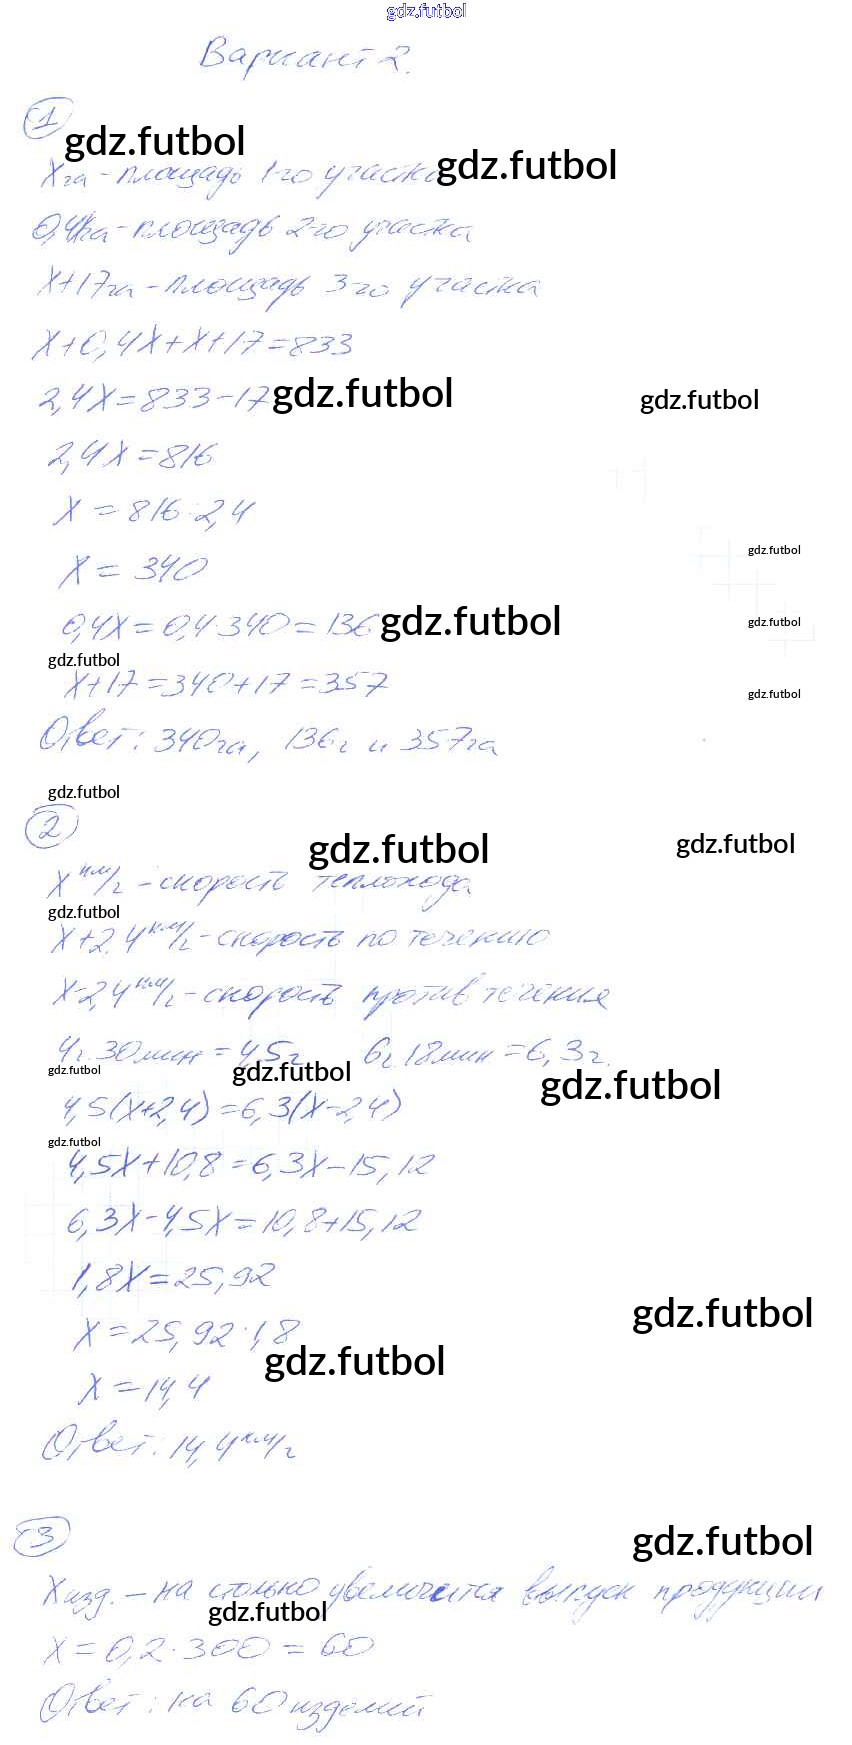 gdz.futbol
Вариант 2.
1
gdz.futbol
x га - площадь 1-го участка
gdz.futbol
0,4x га - площадь 2-го участка
x+17 га - площадь 3-го участка
x+0,4x+x+17=833
2,4x=833-17
gdz.futbol
gdz.futbol
2,4x=816
x=816:2,4
gdz.futbol
x=340
0,4x=0,4·340=136
gdz.futbol
gdz.futbol
gdz.futbol
x+17=340+17=357
gdz.futbol
Ответ: 340га, 136г и 357га
gdz.futbol
2
gdz.futbol
gdz.futbol
x км/г - скорость теплохода
gdz.futbol
x+2,4 км/г - скорость по течению
x-2,4 км/г - скорость против течения
4г. 30мин=4,5г 6г. 18мин=6,3г.
gdz.futbol
gdz.futbol
gdz.futbol
4,5(x+2,4)=6,3(x-2,4)
gdz.futbol
4,5x+10,8=6,3x-15,12
6,3x-4,5x=10,8+15,12
1,8x=25,92
gdz.futbol
x=25,92:1,8
gdz.futbol
x=14,4
Ответ: 14,4 км/г
3
gdz.futbol
x изд. - на столько увеличится выпуск продукции
gdz.futbol
x=0,2·300=60
Ответ: на 60 изделий